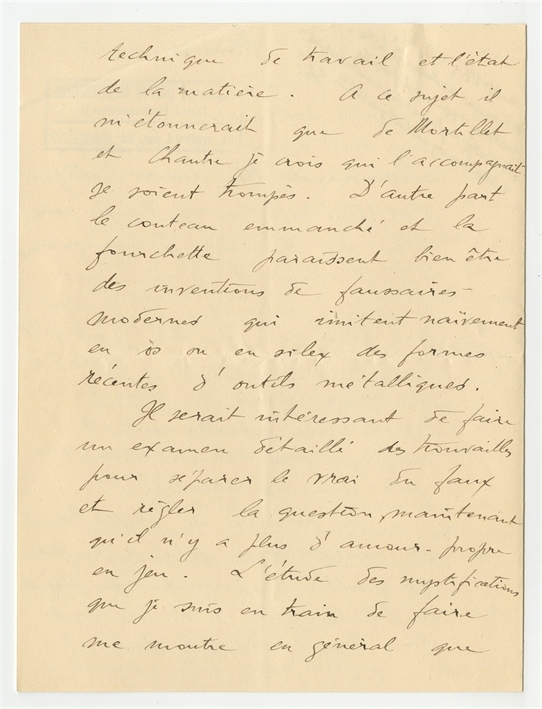 technique de travail et l'état
de la matière. A ce sujet il
m'étonnerait que de Mortillet
et Chantre je crois qui l'accompagnait
se soient trompés. D'autre part
le couteau emmanché et la
fourchette paraissent bien être
des inventions de faussaires
modernes qui imitent naïvement
en os ou en silex des formes
récentes d'outils métalliques.
Il serait intéressant de faire
un examen détaillé des trouvailles
pour séparer le vrai du faux
et règler la question, maintenant
qu'il n'y a plus d'amour-propre
en jeu. L'étude des mystifications
que je suis en train de faire
me montre en général que